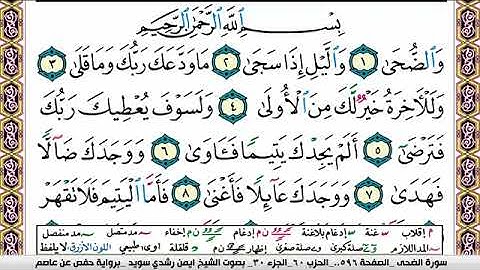 بِسْمِ ٱللَّهِ ٱلرَّحْمَٰنِ ٱلرَّحِيمِ
وَٱلضُّحَىٰ ١ وَٱلَّيْلِ إِذَا سَجَىٰ ٢ مَا وَدَّعَكَ رَبُّكَ وَمَا قَلَىٰ ٣
وَلَلْآخِرَةُ خَيْرٌ لَّكَ مِنَ ٱلْأُولَىٰ ٤ وَلَسَوْفَ يُعْطِيكَ رَبُّكَ
فَتَرْضَىٰٓ ٥ أَلَمْ يَجِدْكَ يَتِيمًا فَـَٔاوَىٰ ٦ وَوَجَدَكَ ضَآلًّا
فَهَدَىٰ ٧ وَوَجَدَكَ عَآئِلًا فَأَغْنَىٰ ٨ فَأَمَّا ٱلْيَتِيمَ فَلَا تَقْهَرْ
م إقلاب س غنة إدغام بلاغنة ن م إدغام ن م إخفاء مد متصل مد منفصل
المد اللازم صلة كبرى صلة صغرى إظهار ن م قلقلة اوى طبيعي اللون الأزرق لا يلفظ
سورة الضحى _الصفحة ٥٩٦_ الحزب ٦٠_الجزء ٣٠_ بصوت الشيخ ايمن رشدي سويد _برواية حفص عن عاصم